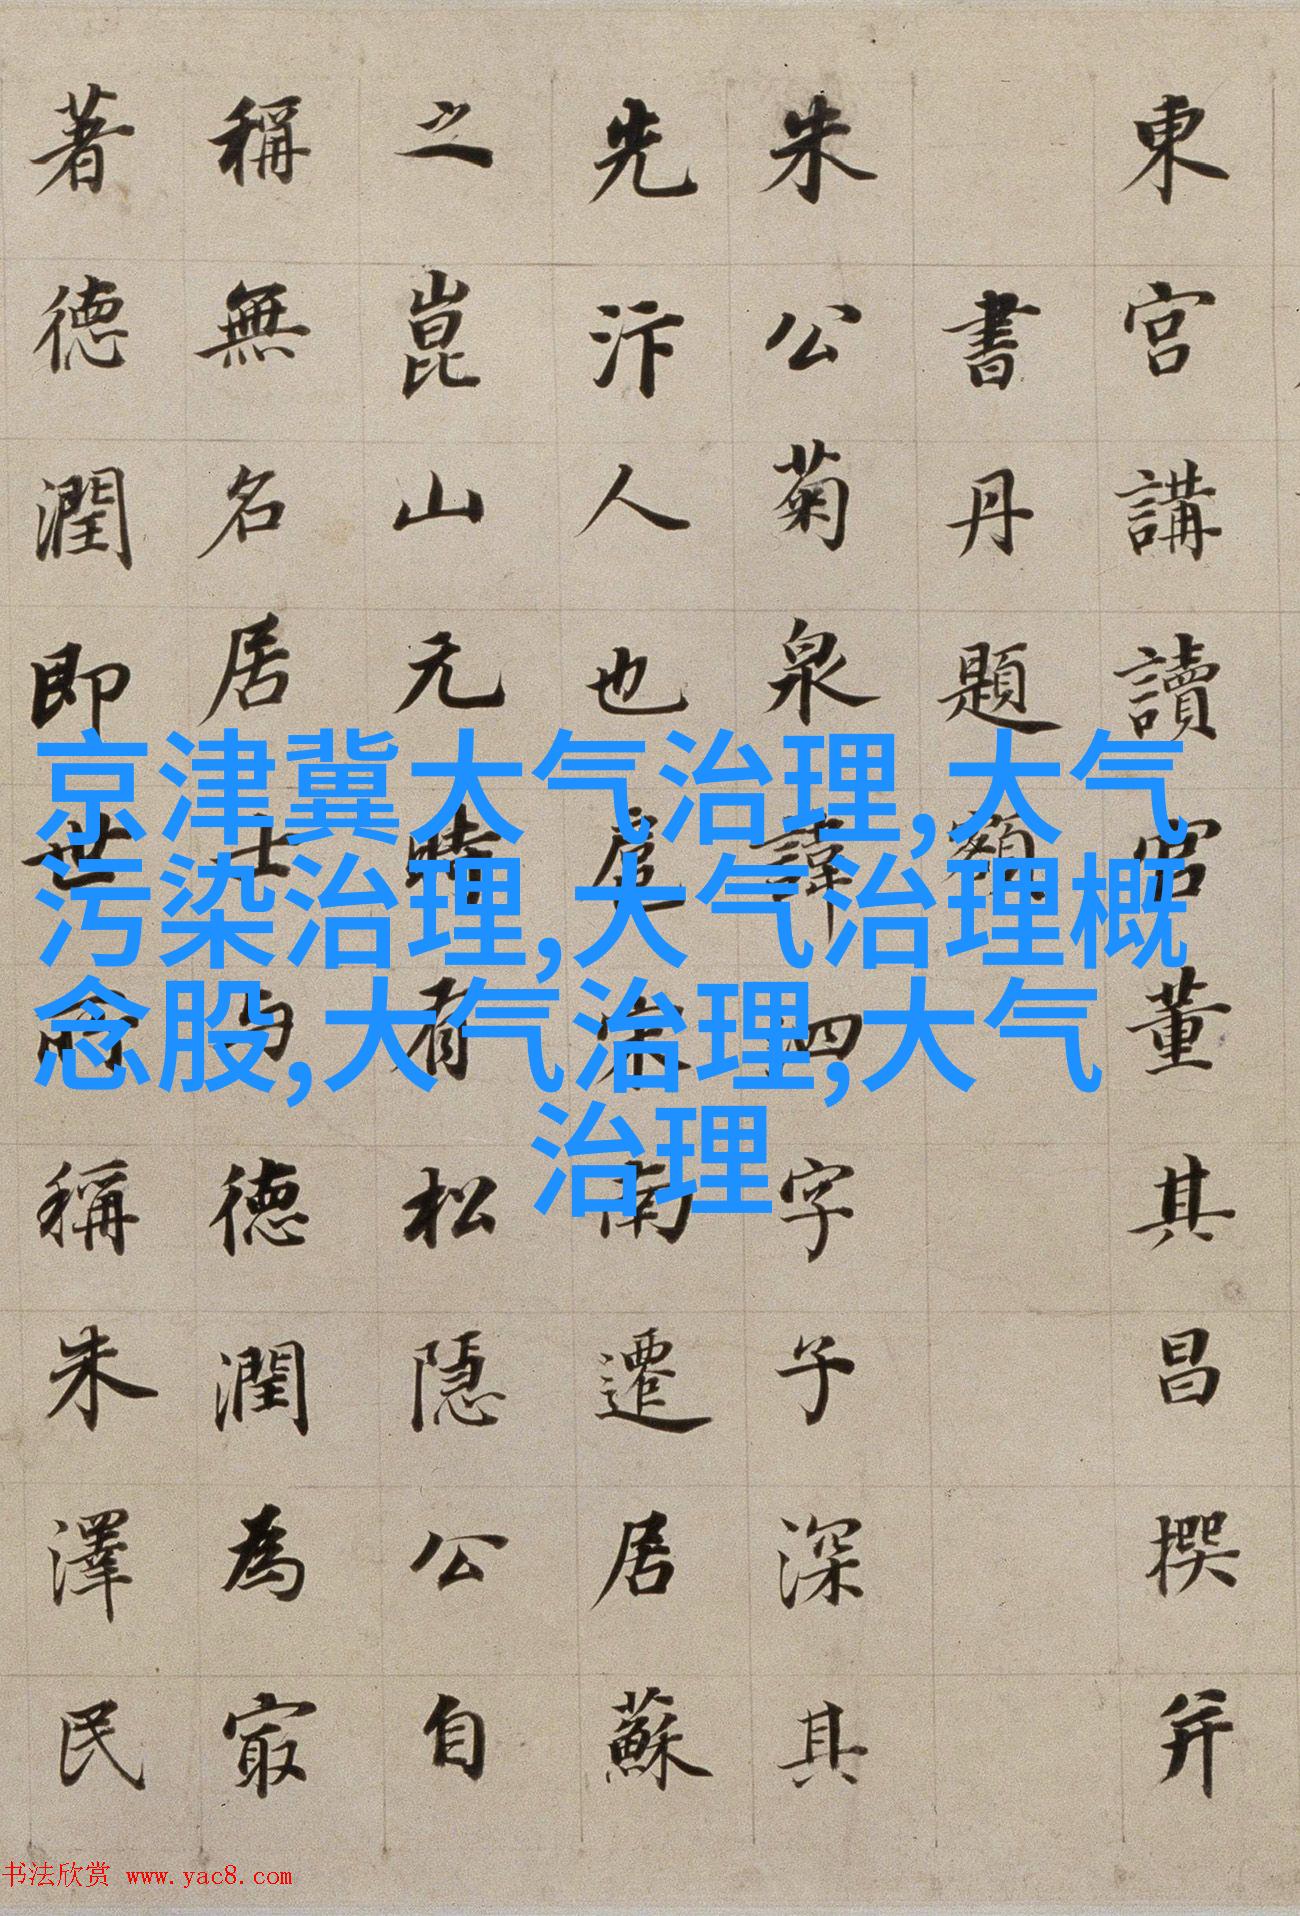 東宮講讀官董其昌撰并
書丹題額
朱公菊泉諱泗字子深其
先汴人也扈宋南遷居蘇
之崑山元時有松隱公自
稱無名居士与德潤為最
著德潤即世所稱朱澤民
京津冀大气治理,大气
污染治理,大气治理概
念股,大气治理,大气
治理
书法欣赏 www.yac8.com